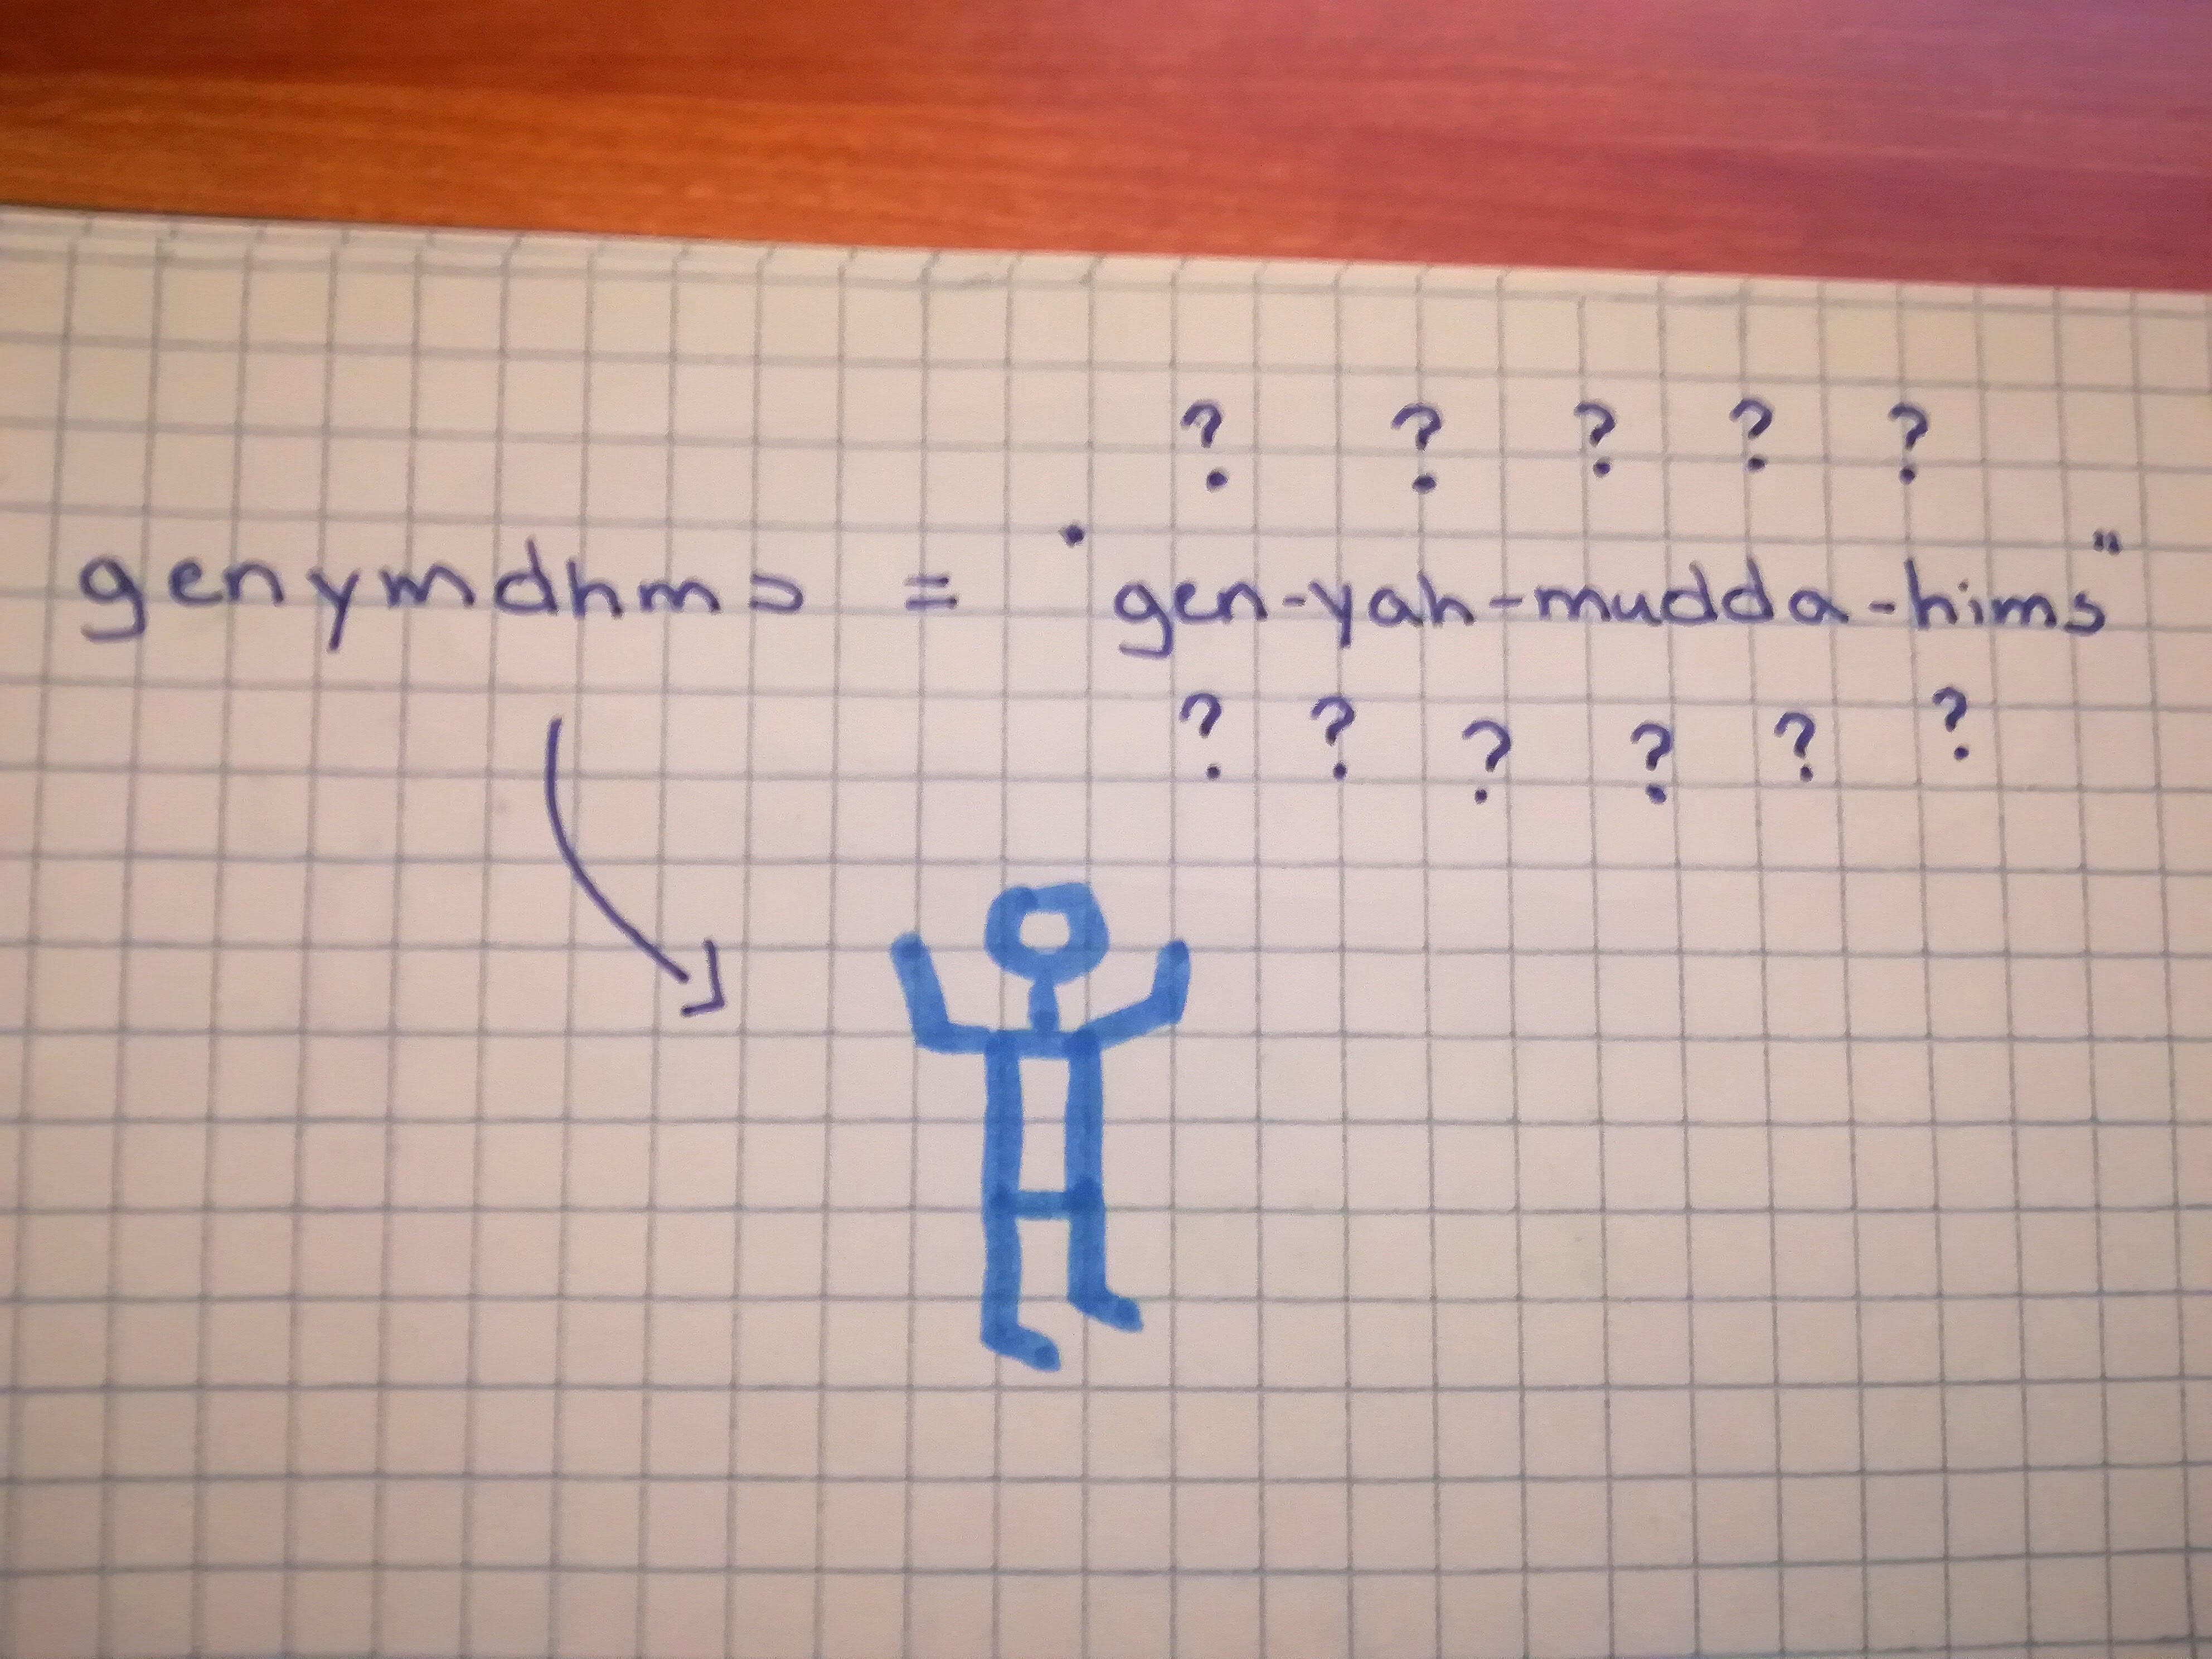 ? ? ? ? ?
genymdhms = "gen-yah-mudda-hims"
? ? ? ? ? ?